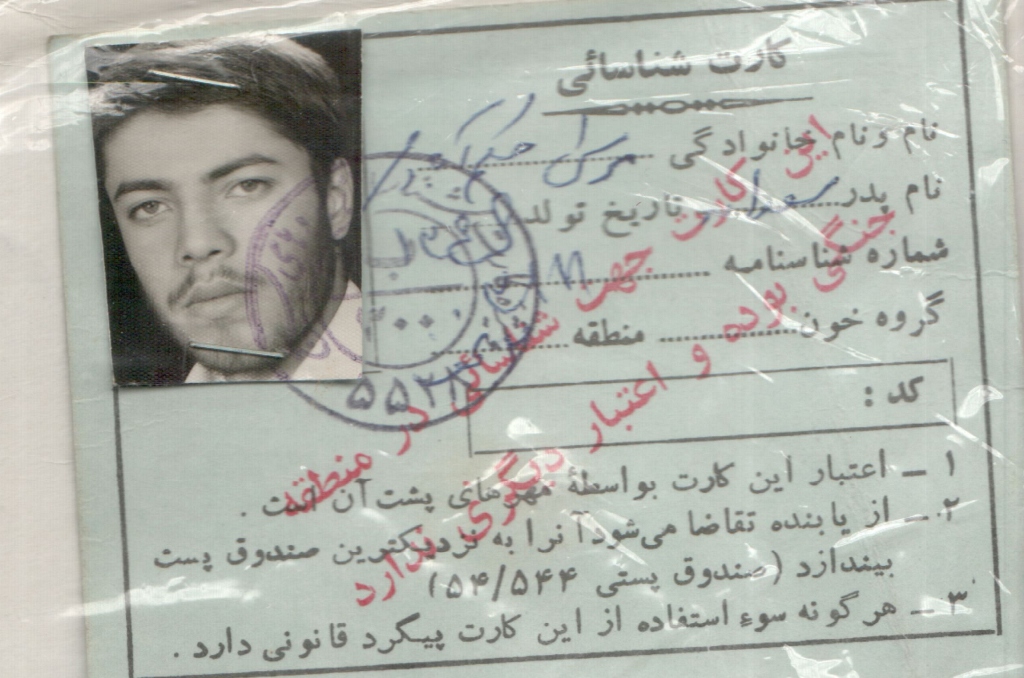 کارت شناسائی
نام و نام خانوادگی
نام پدر تاریخ تولد
شماره شناسنامه
گروه خون منطقه
کد :
۱ ــ اعتبار این کارت بواسطهٔ مهرهای پشت آن است .
۲ ــ از یابنده تقاضا می‌شود آنرا به نزدیکترین صندوق پست
بیندازد (صندوق پستی ۵۴/۵۴۴)
۳ ــ هرگونه سوء استفاده از این کارت پیگرد قانونی دارد .
این کارت جهت شناسائی در منطقه
جنگی بوده و اعتبار دیگری ندارد